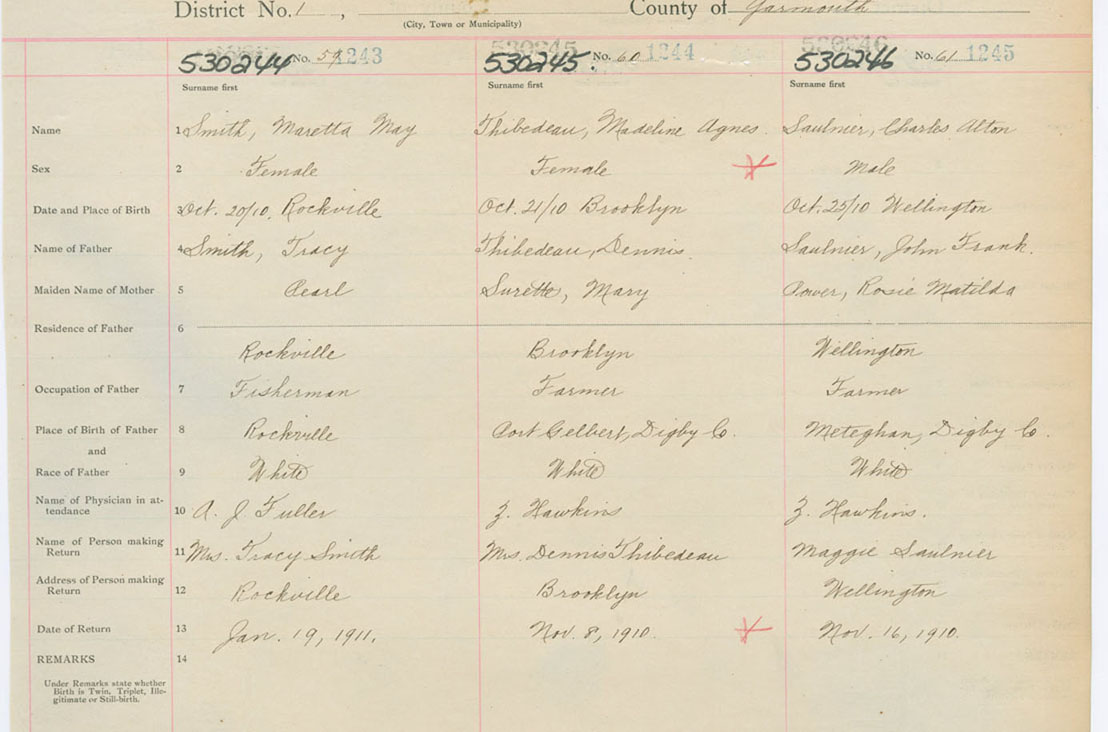 District No. 1 , County of Yarmouth
(City, Town or Municipality)
530244 No. 59 1243 530245 No. 60 1244 530246 No. 61 1245
Surname first Surname first Surname first
Name 1 Smith, Maretta May Thibedeau, Madeline Agnes. Saulnier, Charles Alton
Sex 2 Female Female Male
Date and Place of Birth 3 Oct. 20/10, Rockville Oct. 21/10 Brooklyn Oct. 25/10 Wellington
Name of Father 4 Smith, Tracy Thibedeau, Dennis. Saulnier, John Frank.
Maiden Name of Mother 5 Pearl Surette, Mary Power, Rosie Matilda
Residence of Father 6
Rockville Brooklyn Wellington
Occupation of Father 7 Fisherman Farmer Farmer
Place of Birth of Father 8 Rockville Port Gelbert, Digby Co. Meteghan, Digby Co.
and
Race of Father 9 White White White
Name of Physician in at-
tendance 10 A. J Fuller Z. Hawkins Z. Hawkins.
Name of Person making
Return 11 Mrs. Tracy Smith Mrs Dennis Thibedeau Maggie Saulnier
Address of Person making
Return 12 Rockville Brooklyn Wellington
Date of Return 13 Jan. 19, 1911. Nov. 8, 1910. Nov. 16, 1910.
REMARKS 14
Under Remarks state whether
Birth is Twin, Triplet, Ille-
gitimate or Still-birth.